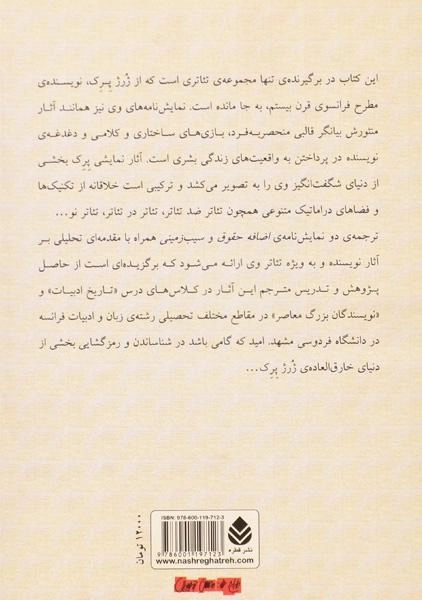 این کتاب در برگیرنده‌ی تنها مجموعه‌ی تئاتری است که از ژُرژ پِرِک، نویسنده‌ی
مطرح فرانسوی قرن بیستم، به جا مانده است. نمایش‌نامه‌های وی نیز همانند آثار
منثورش بیانگر قالبی منحصربه‌فرد، بازی‌های ساختاری و کلامی و دغدغه‌ی
نویسنده در پرداختن به واقعیت‌های زندگی بشری است. آثار نمایشی پِرِک بخشی
از دنیای شگفت‌انگیز وی را به تصویر می‌کشد و ترکیبی است خلاقانه از تکنیک‌ها
و فضاهای دراماتیک متنوعی همچون تئاتر ضد تئاتر، تئاتر در تئاتر، تئاتر نو...
ترجمه‌ی دو نمایش‌نامه‌ی اضافه حقوق و سیب‌زمینی همراه با مقدمه‌ای تحلیلی بر
آثار نویسنده و به ویژه تئاتر وی ارائه می‌شود که برگزیده‌ای است از حاصل
پژوهش و تدریس مترجم این آثار در کلاس‌های درس «تاریخ ادبیات» و
«نویسندگان بزرگ معاصر» در مقاطع مختلف تحصیلی رشته‌ی زبان و ادبیات فرانسه
در دانشگاه فردوسی مشهد. امید که گامی باشد در شناساندن و رمزگشایی بخشی از
دنیای خارق‌العاده‌ی ژُرژ پِرِک...
ISBN: 978-600-119-712-3
9 786001 197123
نشر قطره
www.nashreghatreh.com
۱۲۰۰۰ تومان